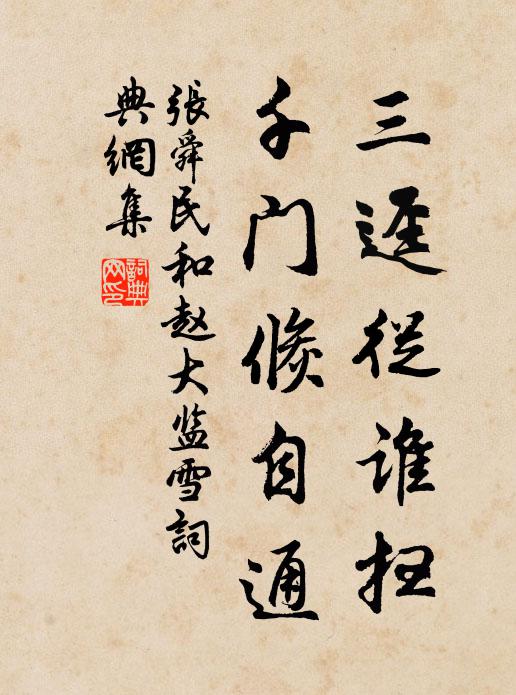 三迳从谁扫
千门倏自通
張舜民和赵大监雪詞
典網集
詞典
网印